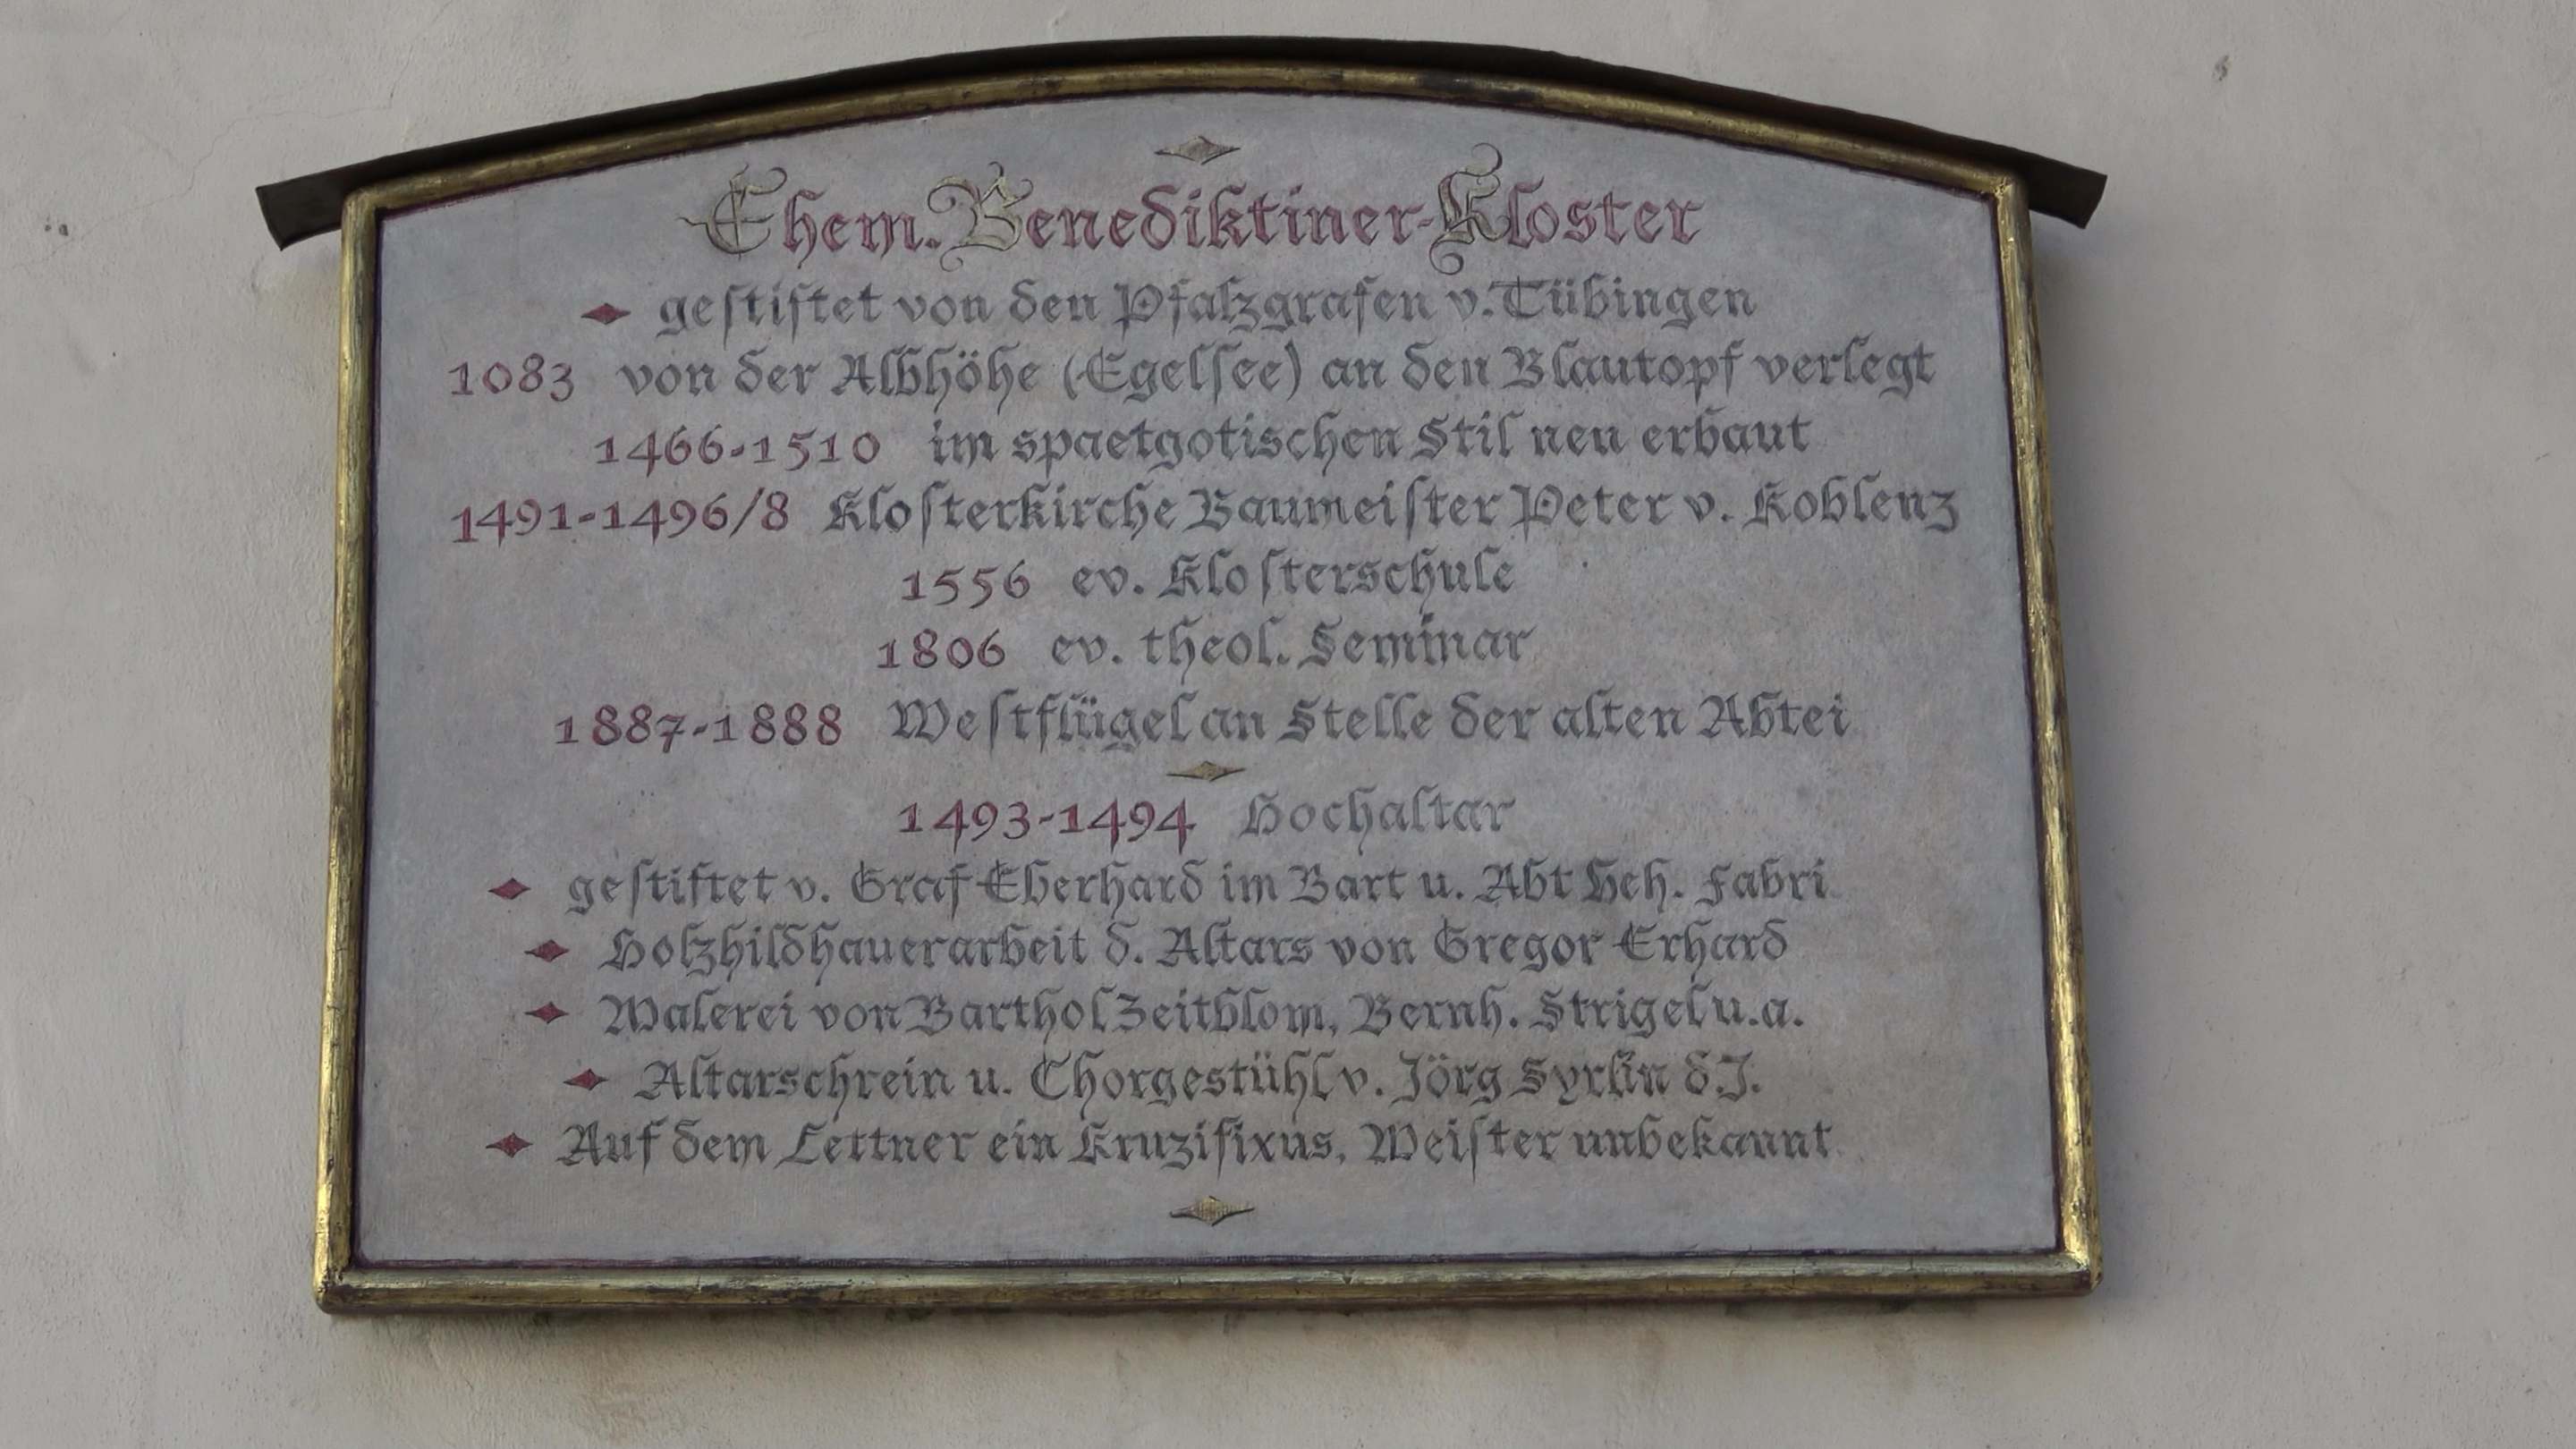 Ehem. Benediktiner-Kloster
geſtiftet von den Pfalzgrafen v. Tübingen
1083 von der Albhöhe (Egelſee) an den Blautopf verlegt
1466-1510 im spaetgotischen Stil neu erbaut
1491-1496/8 Kloſterkirche Baumeiſter Peter v. Koblenz
1556 ev. Kloſterschule
1806 ev. theol. Seminar
1887-1888 Weſtflügel an Stelle der alten Abtei
1493-1494 Hochaltar
geſtiftet v. Graf Eberhard im Bart u. Abt Hch. Fabri
Holzbildhauerarbeit d. Altars von Gregor Erhard
Malerei von Barthol Zeitblom, Bernh. Strigel u.a.
Altarschrein u. Chorgestühl v. Jörg Syrlin d.J.
Auf dem Lettner ein Kruzifixus, Meiſter unbekannt